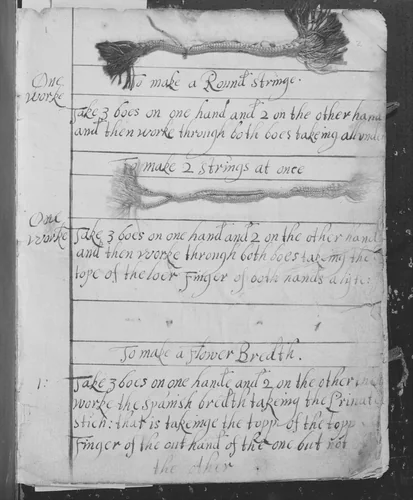 To make a Round stringe.
One
worke
Take 3 boes on one hand and 2 on the other hand
and then worke through both boes takeing all under
To make 2 strings at once
One
worke
Take 3 boes on one hand and 2 on the other hand
and then worke through both boes takeing the
tope of the loer finger of both hands
To make a flower Bredth.
1:
Take 3 boes on one hande and 2 on the other
worke the spanish bredth takeing the
stich: that is takeinge the topp of the topp
finger of the out hand of the one but not
the other